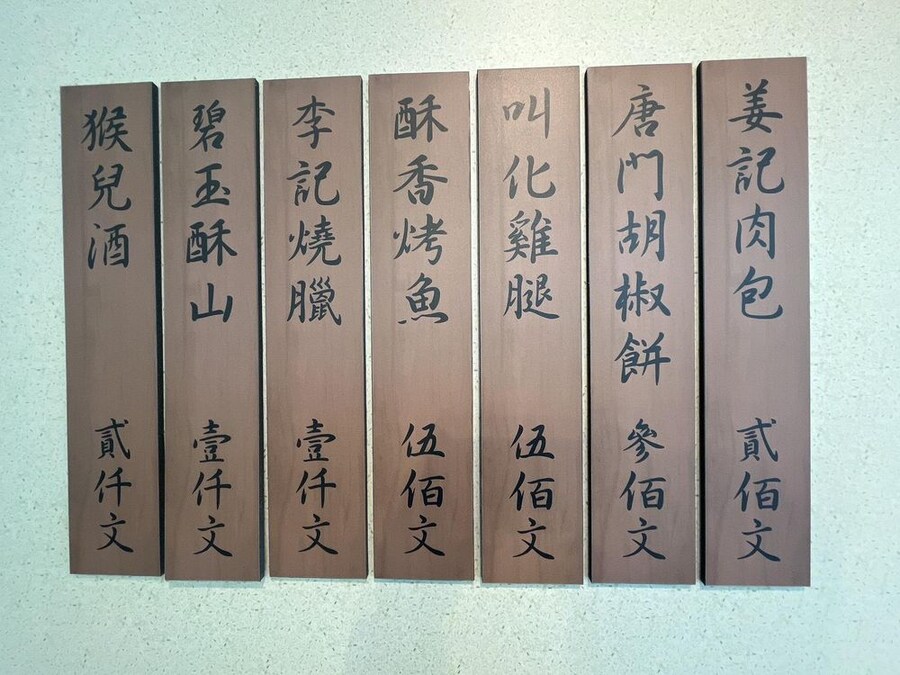 姜記肉包 貳佰文
唐門胡椒餅 參佰文
叫化雞腿 伍佰文
酥香烤魚 伍佰文
李記燒臘 壹仟文
碧玉酥山 壹仟文
猴兒酒 貳仟文